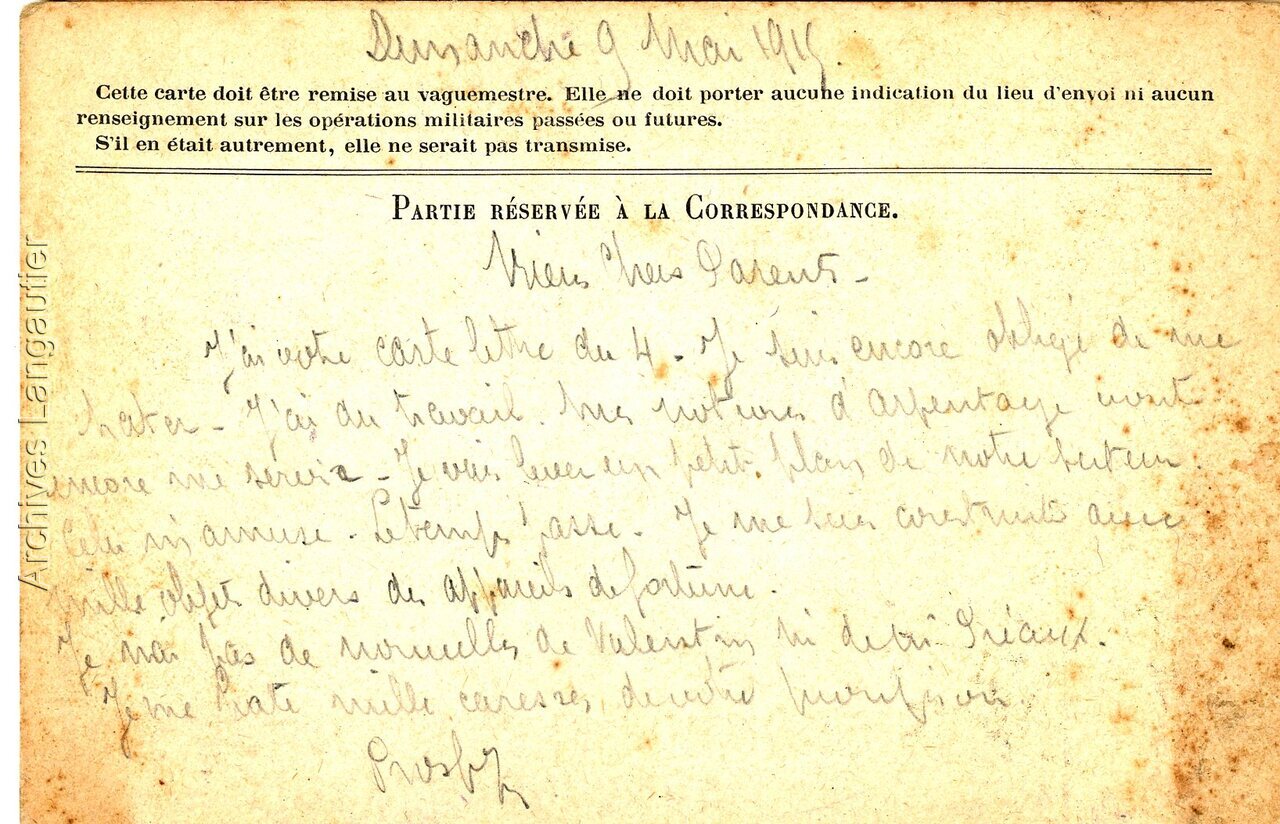 Dimanche 9 Mai 1915.
Cette carte doit être remise au vaguemestre. Elle ne doit porter aucune indication du lieu d'envoi ni aucun
renseignement sur les opérations militaires passées ou futures.
S'il en était autrement, elle ne serait pas transmise.
PARTIE RÉSERVÉE À LA CORRESPONDANCE.
Mes Parents -
J'ai votre carte lettre du 4 - Je suis encore obligé de me
hater - J'ai du travail. Mes notions d'arpentage vont
encore me servir - Je vais lever un petit plan de notre secteur.
Cela m'amuse. Le temps passe. Je me suis construit avec
mille objets divers des appareils de fortune.
Je n'ai pas de nouvelles de Valentin ni de
Je me hate mille caresses de votre
Archives Langautier